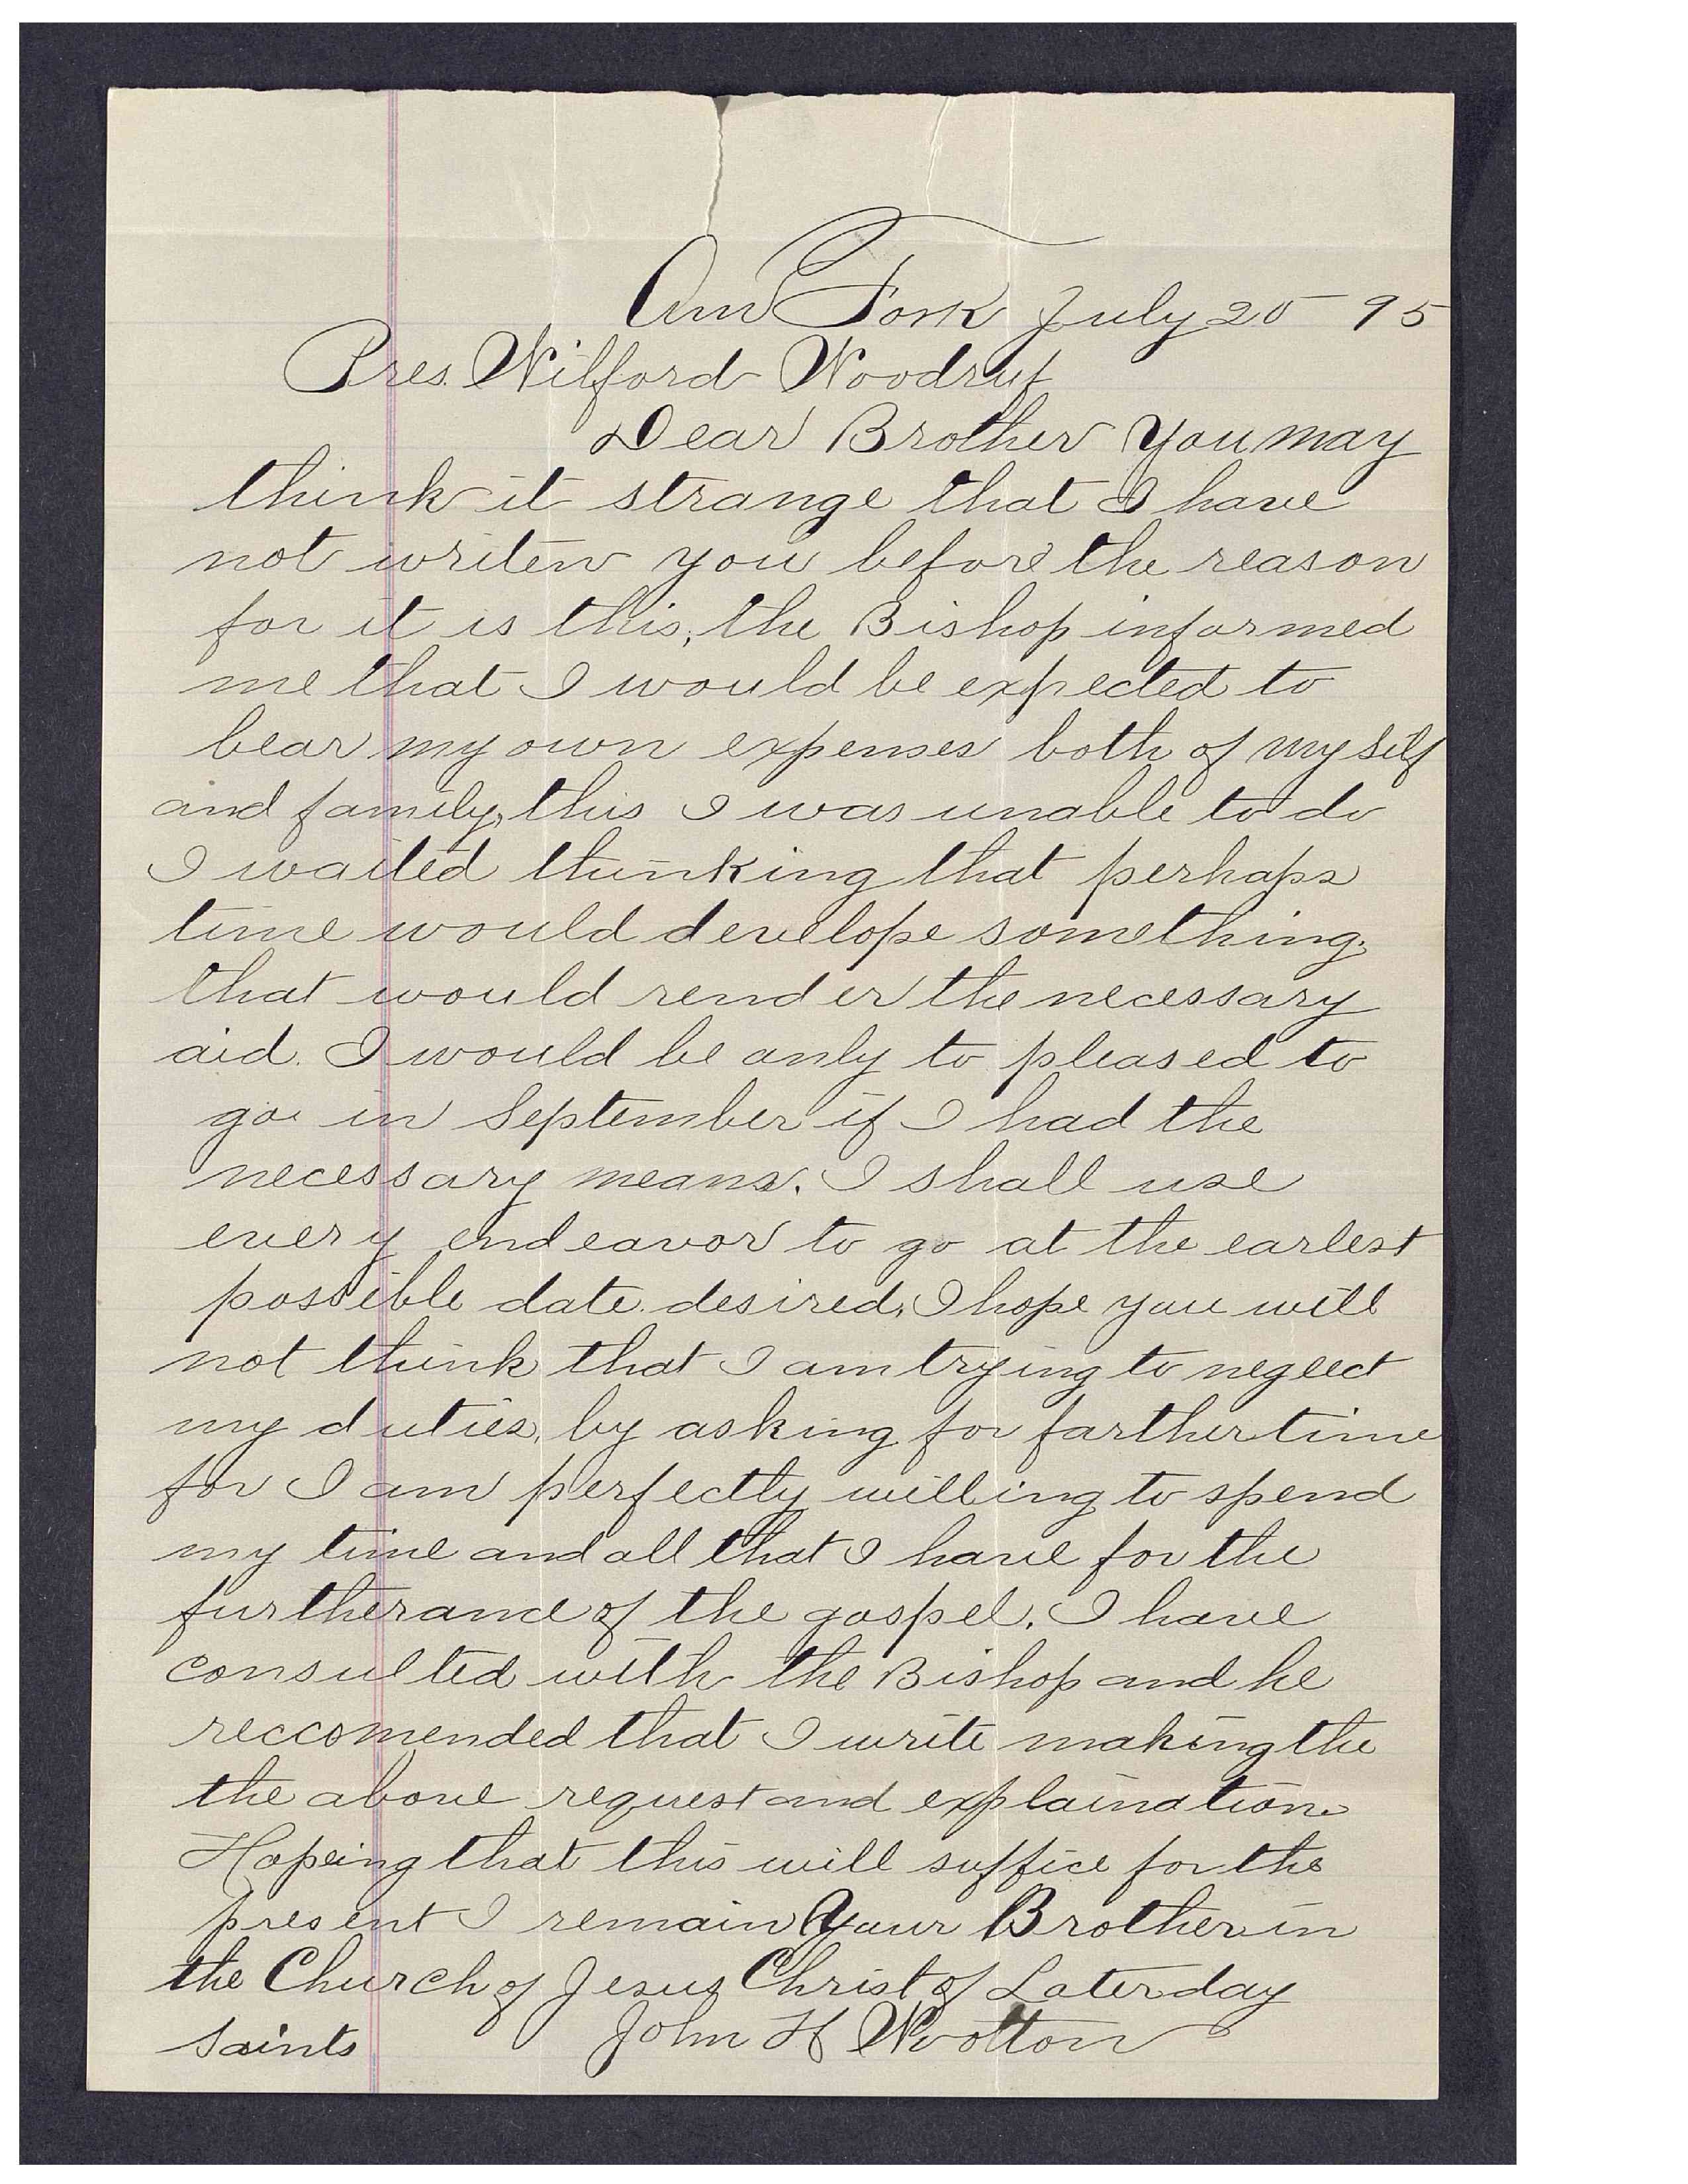 Am Fork July 20 95
Pres. Wilford Woodruf
Dear Brother You may
think it strange that I have
not writen you before the reason
for it is this, the Bishop informed
me that I would be expected to
bear my own expenses both of my self
and family, this I was unable to do
I waited thinking that perhaps
time would develope something
that would render the necessary
aid. I would be only to pleased to
go in September if I had the
necessary means. I shall use
every endeavor to go at the earlest
possible date desired, I hope you will
not think that I am trying to neglect
my duties, by asking for farther time
for I am perfectly willing to spend
my time and all that I have for the
furtherance of the gospel. I have
consulted with the Bishop and he
reccomended that I write making the
the above request and explaination.
Hopeing that this will suffice for the
present I remain Your Brother in
the Church of Jesus Christ of Laterday
Saints John H Wootton